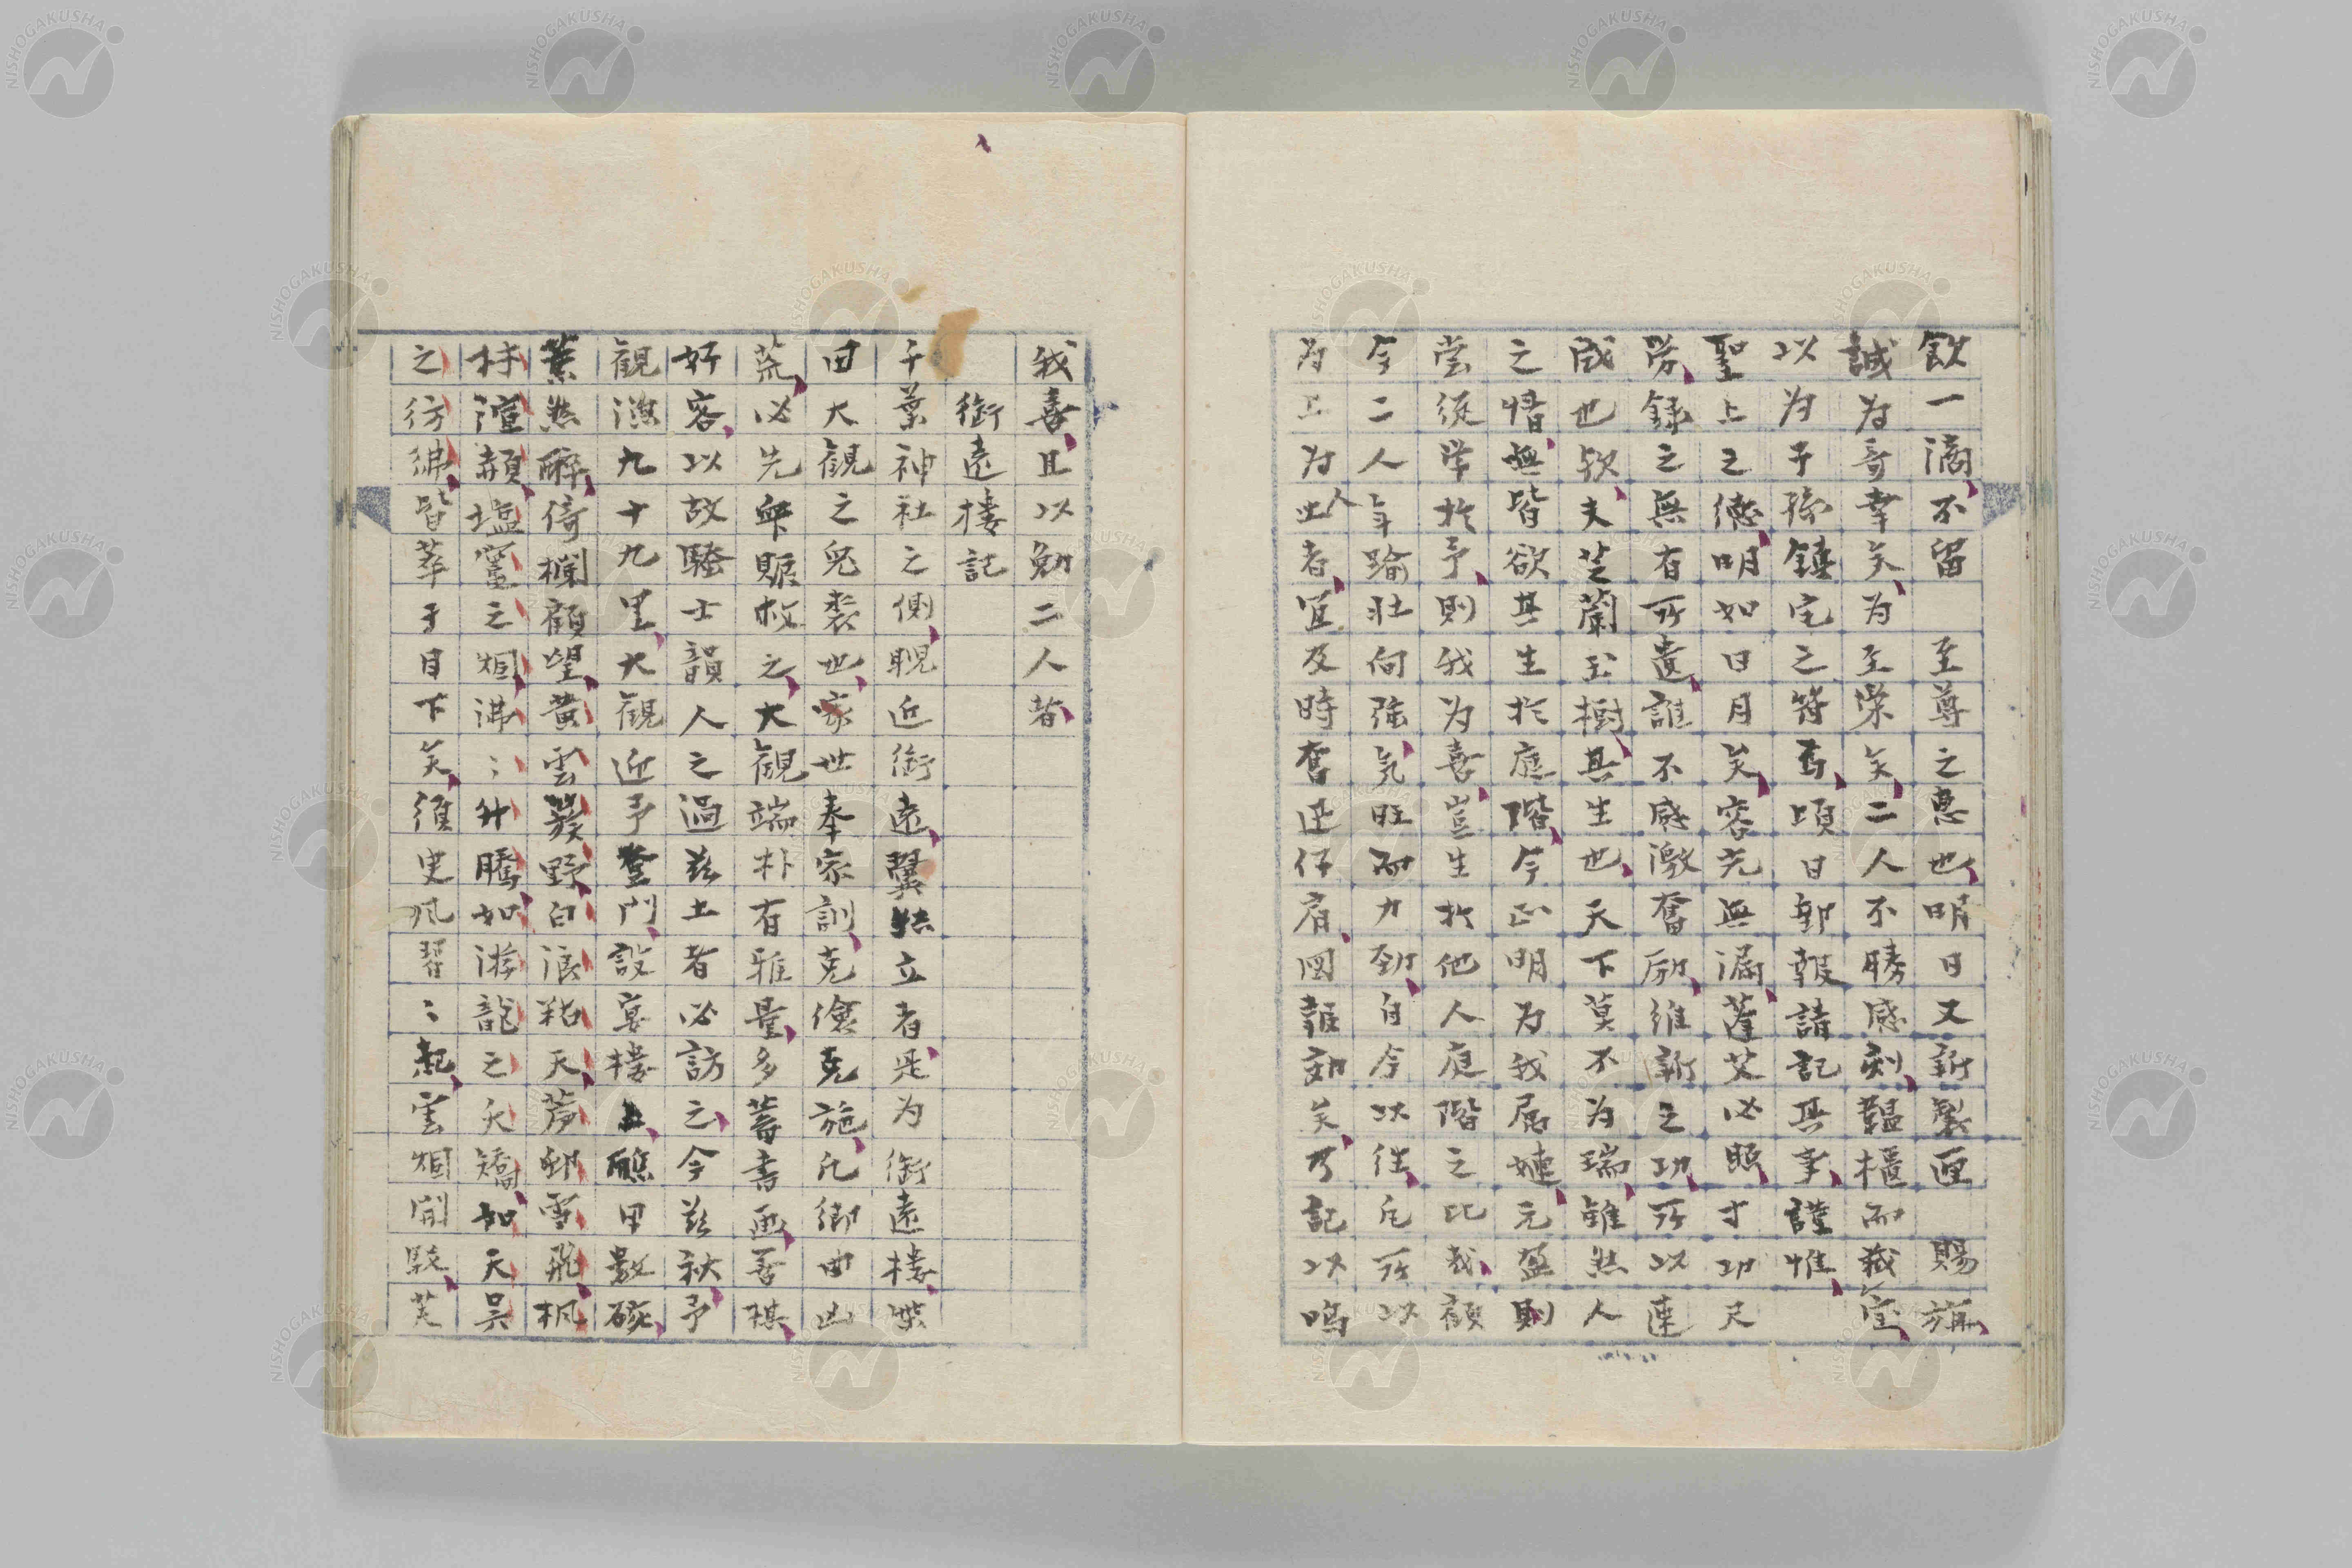 飲一滴、不留　至尊之恵也、明日又新製匣　賜旃、
誠为奇幸矣、为至栄矣、二人不勝感刻、韞櫃而蔵、
以为子孫鎮宅之符焉、頃日郵報請記其事、謹惟、
聖上之徳、明如日月矣、容光無漏、蓬艾必照、寸功尺
労、録之無有所遺、誰不感激奮励、維新之功、所以速
成也歟、夫芝蘭玉樹、其生也、天下莫不为瑞、雖然人
之情、無皆欲其生於庭階、今正明为我属𡜍、元盈則
嘗従学於予、則我为喜、豈生於他人庭階之比哉、顧
今二人年踰壮向強、気旺而力勁、自今以往、凡所以
为上为人者、宜及時奮迅仔肩、図報効矣、乃記以鳴
我喜、且以勉二人者、
銜遠楼記
千葉神社之側、睍近銜遠、翼然立者、是为銜遠楼、柴
田大観之兎裘也、家世奉家訓、克倹克施、凡郷曲凶
荒、必先衆賑救之、大観端朴有雅量、多蓄書画、善棋、
好客、以故騒士韻人之過玆土者必訪之、今玆秋予
観漁九十九里、大観迎予登門、設宴楼上、醮甲数碗、
薫然酔、倚欄顧望、黄雲簇野、白浪粘天、蘆郵雪飛、楓
林渲頳、塩竈之烟、沸々升騰、如游龍之夭矯、如天呉
之彷彿、皆萃于目下矣、須臾風習々起、雲烟開駁、芙